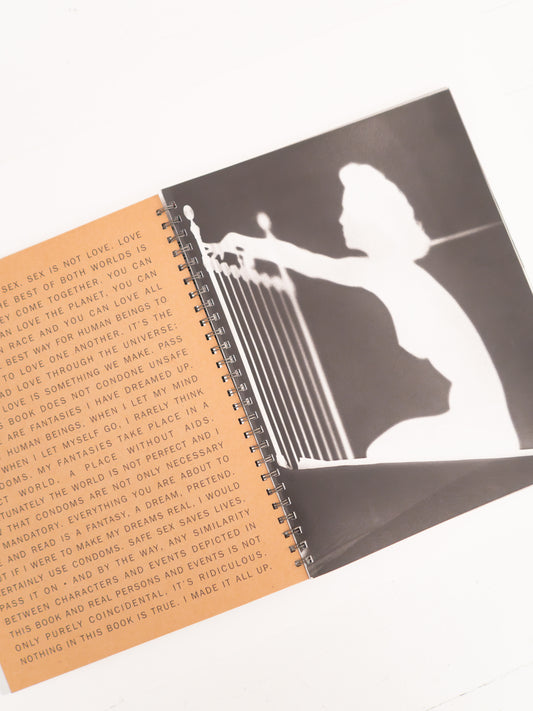 SEX. SEX IS NOT LOVE. LOVE
THE BEST OF BOTH WORLDS IS
THEY COME TOGETHER. YOU CAN
CAN LOVE THE PLANET, YOU CAN
RACE AND YOU CAN LOVE ALL
BEST WAY FOR HUMAN BEINGS TO
TO LOVE ONE ANOTHER. IT'S THE
LOVE THROUGH THE UNIVERSE;
LOVE IS SOMETHING WE MAKE. PASS
BOOK DOES NOT CONDONE UNSAFE
ARE FANTASIES I HAVE DREAMED UP.
HUMAN BEINGS. WHEN I LET MY MIND
WHEN I LET MYSELF GO, I RARELY THINK
MY FANTASIES TAKE PLACE IN A
WORLD. A PLACE WITHOUT AIDS.
THE WORLD IS NOT PERFECT AND I
THAT CONDOMS ARE NOT ONLY NECESSARY
MANDATORY. EVERYTHING YOU ARE ABOUT TO
AND READ IS A FANTASY, A DREAM, PRETEND.
IF I WERE TO MAKE MY DREAMS REAL, I WOULD
CERTAINLY USE CONDOMS. SAFE SEX SAVES LIVES.
PASS IT ON • AND BY THE WAY, ANY SIMILARITY
BETWEEN CHARACTERS AND EVENTS DEPICTED IN
THIS BOOK AND REAL PERSONS AND EVENTS IS NOT
ONLY PURELY COINCIDENTAL, IT'S RIDICULOUS.
NOTHING IN THIS BOOK IS TRUE. I MADE IT ALL UP.